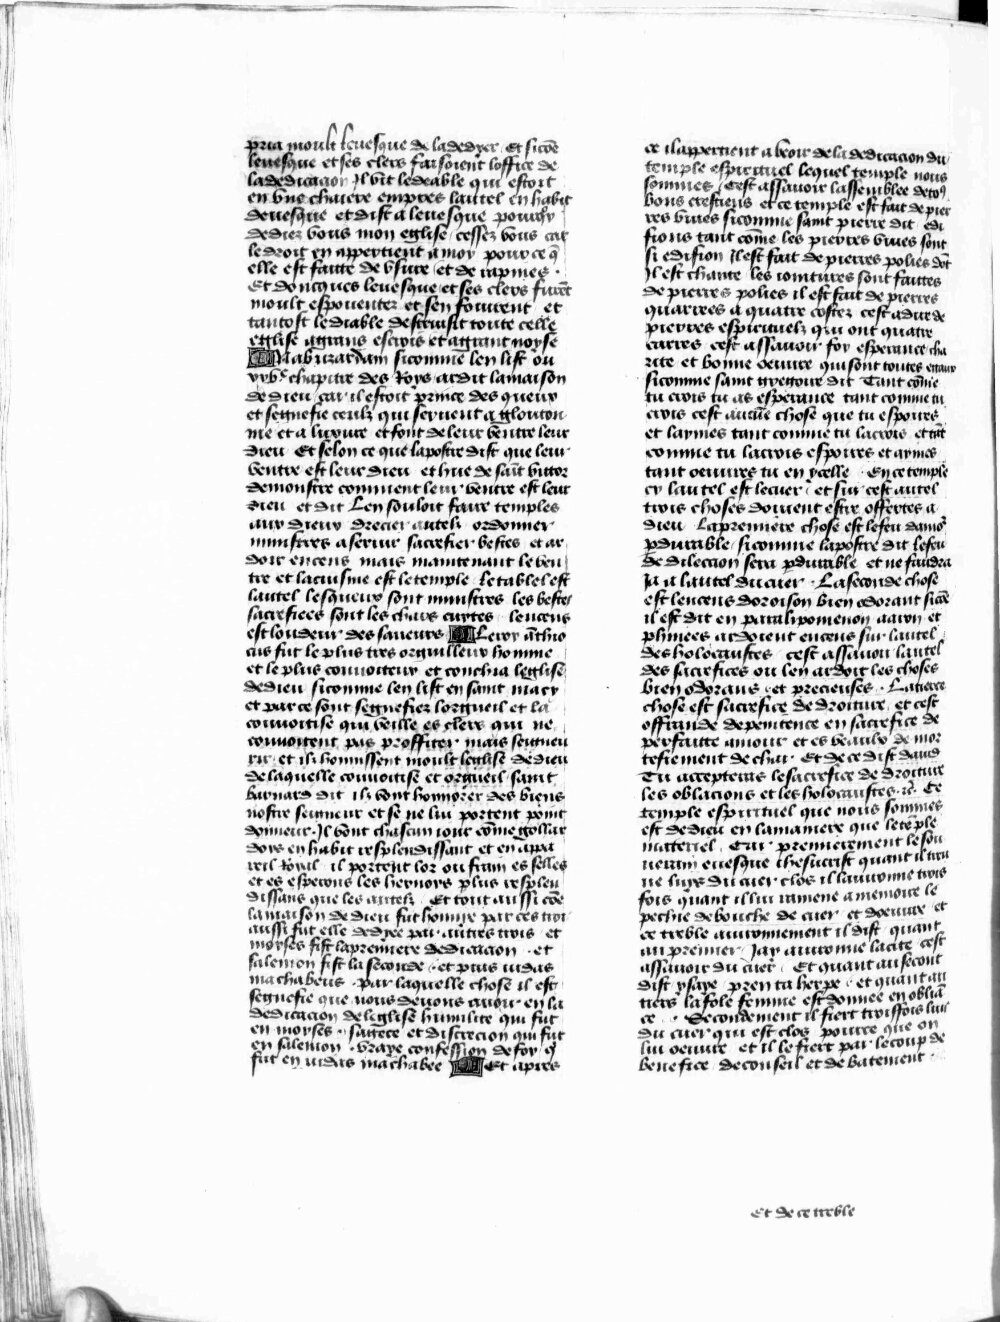 pria moult leuesque de la dedyer Et sicōe
leuesque et ses clers faisoient loffice de
la dedicacion Il vit le deable qui estoit
en vne chaiere empres lautel en habit
deuesque et dist a leuesque pourqͥy
dediez vous mon eglise cessez vous car
le droit en appertient a moy pource q̄
elle est faitte de vsure et de rapines
Et doncques leuesque et ses clers furēt
moult espouentez et sen fouirent et
tantost le diable destruisit toute celle
eglise a grans escrois et a grant noyse
Nabuzardam sicomme len list ou
chapitre des Roys ardit la maison
de dieu car il estoit prince des queux
et segnefie ceulz qui seruent a glouton
nie et a luxure et font de leur ventre leur
dieu Et selon ce que lapostre dist que leur
ventre est leur dieu et hue de saīt victor
demonstre comment leur ventre est leur
dieu et dit Len souloit faire temples
aux dieux drecier autelz ordonner
ministres a seruir sacrefier bestes et ar
doir encens mais maintenant le ven
tre et la cuisine est le temple la table est
lautel les queux sont ministres les bestes
sacrefiees sont les chars cuites lencens
est loudeur des saueurs Le roy āthio
cus fut le plus tres orguilleux homme
et le plus conuoiteux et conchia leglise
de dieu sicomme len list en saint macy
et par ce sont segnefiez lorgueil et la
couuoitise qui veille es clers qui ne
conuoitent pas proffiter mais seigneu
rir et ilz honnissent moult leglise de dieu
de laquelle couuoitise et orgueil saint
barnard dit ilz vont honnorez des biens
nostre seigneur et se ne lui portent point
donneur Il vont chascun iour cōme gollar
dois en habit resplendissant et en appa
reil Roial il portent lor ou frain es selles
et es esperons les hernoys plus resplen
dissans que les autelz Et tout aussi cōe
la maison de dieu fut honnye par ces troi
aussi fut elle dedyee par autres trois et
moyses fist la premiere dedicacion et
salemon fist la seconde et puis iudas
machabeus par laquelle chose il est
segnefie que nous deuons auoir en la
dedicacion de leglise humilite qui fut
en moyses sagece et discrecion qui fut
en salemon vraye confession de foy q̄
fut en iudas machabee Et apres
ce il appertient a veoir de la dedicacion du
temple espirituel lequel temple nous
sommes cest assauoir lassemblee de toꝰ
bons crestiens et ce temple est fait de pier
res viues sicomme saint pierre dit edi
fions tant cōme les pierres viues sont
si edifion Il est fait de pierres polies dōt
Il est chante les iointures sont faittes
de pierres polies il est fait de pierres
quarrees a quatre costez cest a dire de
pierres espirituelz qui ont quatre
carres cest assauoir foy esperance cha
rite et bonne oeuure qui sont toutes
sicomme saint gregoire dit Tant cōme
tu crois tu as esperance tant comme tu
crois cest aucūe chose que tu espoires
et laymes tant comme tu la crois et tāt
comme tu la crois espoires et aymes
tant oeuures tu en ycelle En ce temple
cy lautel est le cuer et sur cest autel
trois choses doiuent estre offertes a
dieu La premiere chose est le feu damoͬ
ꝑdurable sicomme lapostre dit le feu
de dileccion sera ꝑdurable et ne faudra
ia a lautel du cuer La seconde chose
est lencens doroison bien odorant sicōe
il est dit en paralipomenon aaron et
phinees ardoient encens sur lautel
des holocaustes cest assauoir lautel
des sacrefices ou len ardoit les choses
bien odorans et precieuses La tierce
chose est sacrefice de droiture et cest
offrande de penitence en sacrefice de
perfaitte amour et es veaulx de mor
tefiement de char Et de ce dist dauid
Tu accepteras le sacrefice de droiture
les oblacions et les holocaustes Ce
temple espirituel que nous sommes
est dedieu en la maniere que le tēple
materiel Car premierement le sou
uerain euesque ihesucrist quant il treu
ue luys du cuer clos il lauironne trois
fois quant il lui ramene a memoire le
pechie de bouche de cuer et doeuure et
ce treble auironnement il dist quant
au premier Jay auironne la cite cest
assauoir du cuer Et quant au secont
dist ysaye pren ta herpe et quant au
tiers la fole femme est donnee en obliā
ce Secondement il fiert trois fois luis
du cuer qui est clos pource que on
lui oeuure et il le fiert par le coup de
benefice de conseil et de batement
Et de ce treble